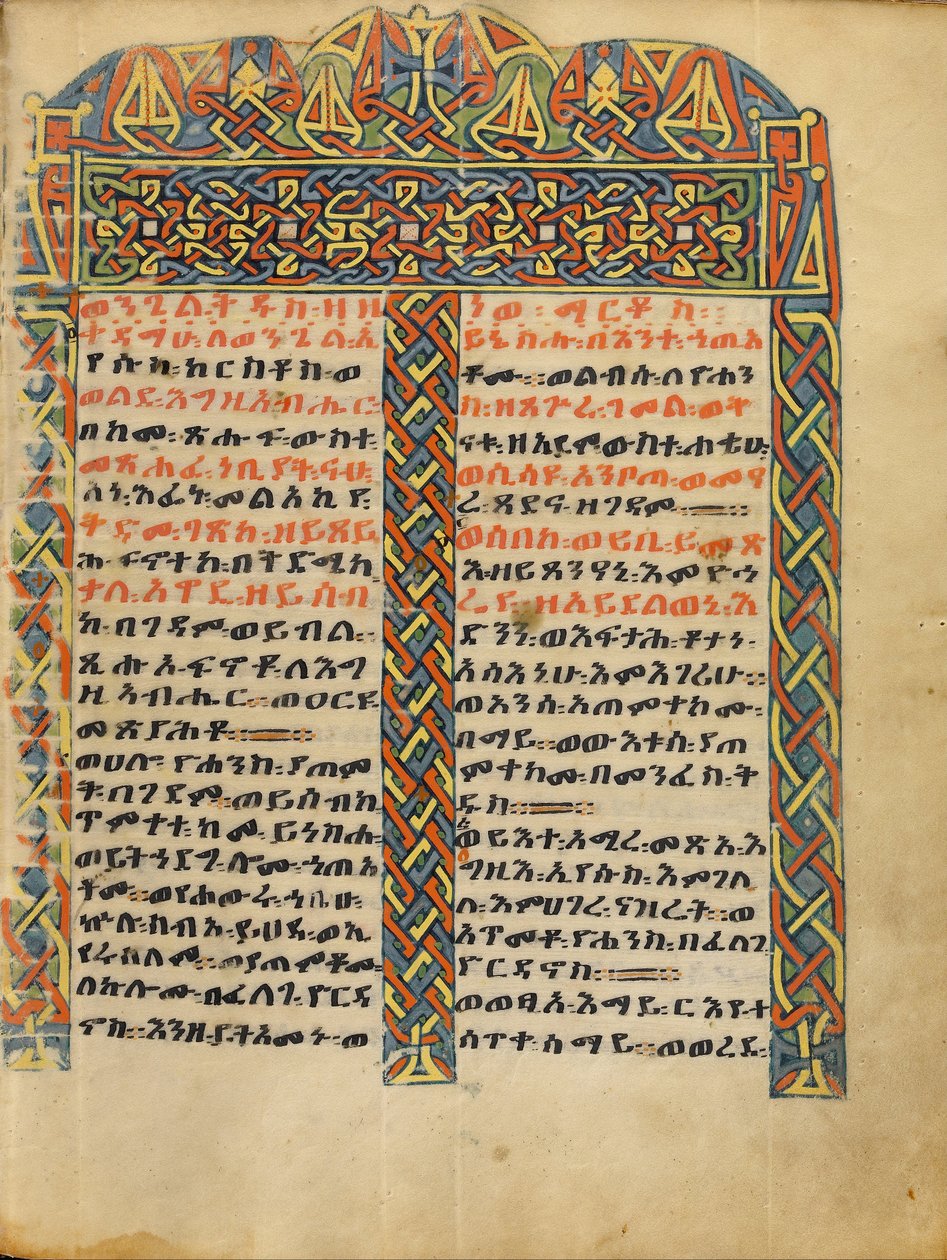 ወንጌል፡ቅዱስ፡ዘዜ
ቀዳማሁ፡ለወንጌል፡ኢ
የሱስ፡ክርስቶስ፡ወ
ወልደ፡እግዚአብሔር፡
በከመ፡ጽሑፍ፡ውስተ፡
መጽሐፈ፡ነቢያት፡ናሁ፡
አነ፡እፌኑ፡መልአኪየ፡
ቅድመ፡ገጽከ፡ዘይጸይ
ሕ፡ፍኖተከ፡በቅድሜከ
ቃለ፡አዋዲ፡ዘይሰብ
ክ፡በገዳም፡ወይብል፡
ጺሑአ፡ፍኖቶ፡ለእግ
ዚአብሔር፡፡ወዐርዩ
መጽያሕቶ፡፡
ወሀሎ፡ዮሐንስ፡ያጠም
ቅ፡በገዳም፡፡ወይሰብክ
ጥምቀተ፡ከመ፡ይነስሑ
ወይትኀደግ፡ሎሙ፡ኀጢአ
ቶሙ፡፡ወየሐውር፡ኀቤሁ፡
ኵሉ፡ሰብአ፡ይሁዳ፡ወኢ
የሩሳሌም፡፡ወያጠምቆሙ፡
ለኵሎሙ፡በፈለገ፡ዮርዳ
ኖስ፡፡እንዘ፡ይትአመኑ፡ወ
ነወ፡ማርቆስ፡፡
ይኔስሑ፡በእንተ፡ኀጢአ
ቶሙ፡፡ወልብሱ፡ለዮሐን
ስ፡ዘጸጕረ፡ገመል፡ወቅ
ናቱ፡ዘአዲም፡ውስተ፡ሐቌሁ፡
ወሲሳዩ፡አንቦጣ፡ወመዓ
ረ፡ጸደና፡ዘገዳም፡፡
ወሰበከ፡ወይቤ፡ይመጽ
እ፡ዘይጸንዓኒ፡እምድኅ
ሬየ፡፡ዘኢይደልወኒ፡እ
ድንን፡ወእፍታሕ፡ቶታነ፡
አሳእኒሁ፡እምእገሪሁ፡፡
ወአንሰ፡አጠምቀክሙ፡
በማይ፡፡ወውእቱሰ፡ያጠ
ምቀክሙ፡በመንፈስ፡ቅ
ዱስ፡፡
ወይእተ፡አሚረ፡መጽአ፡እ
ግዚእ፡ኢየሱስ፡እምገሊ
ላ፡እምሀገረ፡ናዝሬት፡፡ወ
አጥመቆ፡ዮሐንስ፡በፈለገ
ዮርዳኖስ፡፡
ወወፂኦ፡እማይ፡ርእየ፡ተ
ሰጥቀ፡ሰማይ፡፡ወወረደ፡